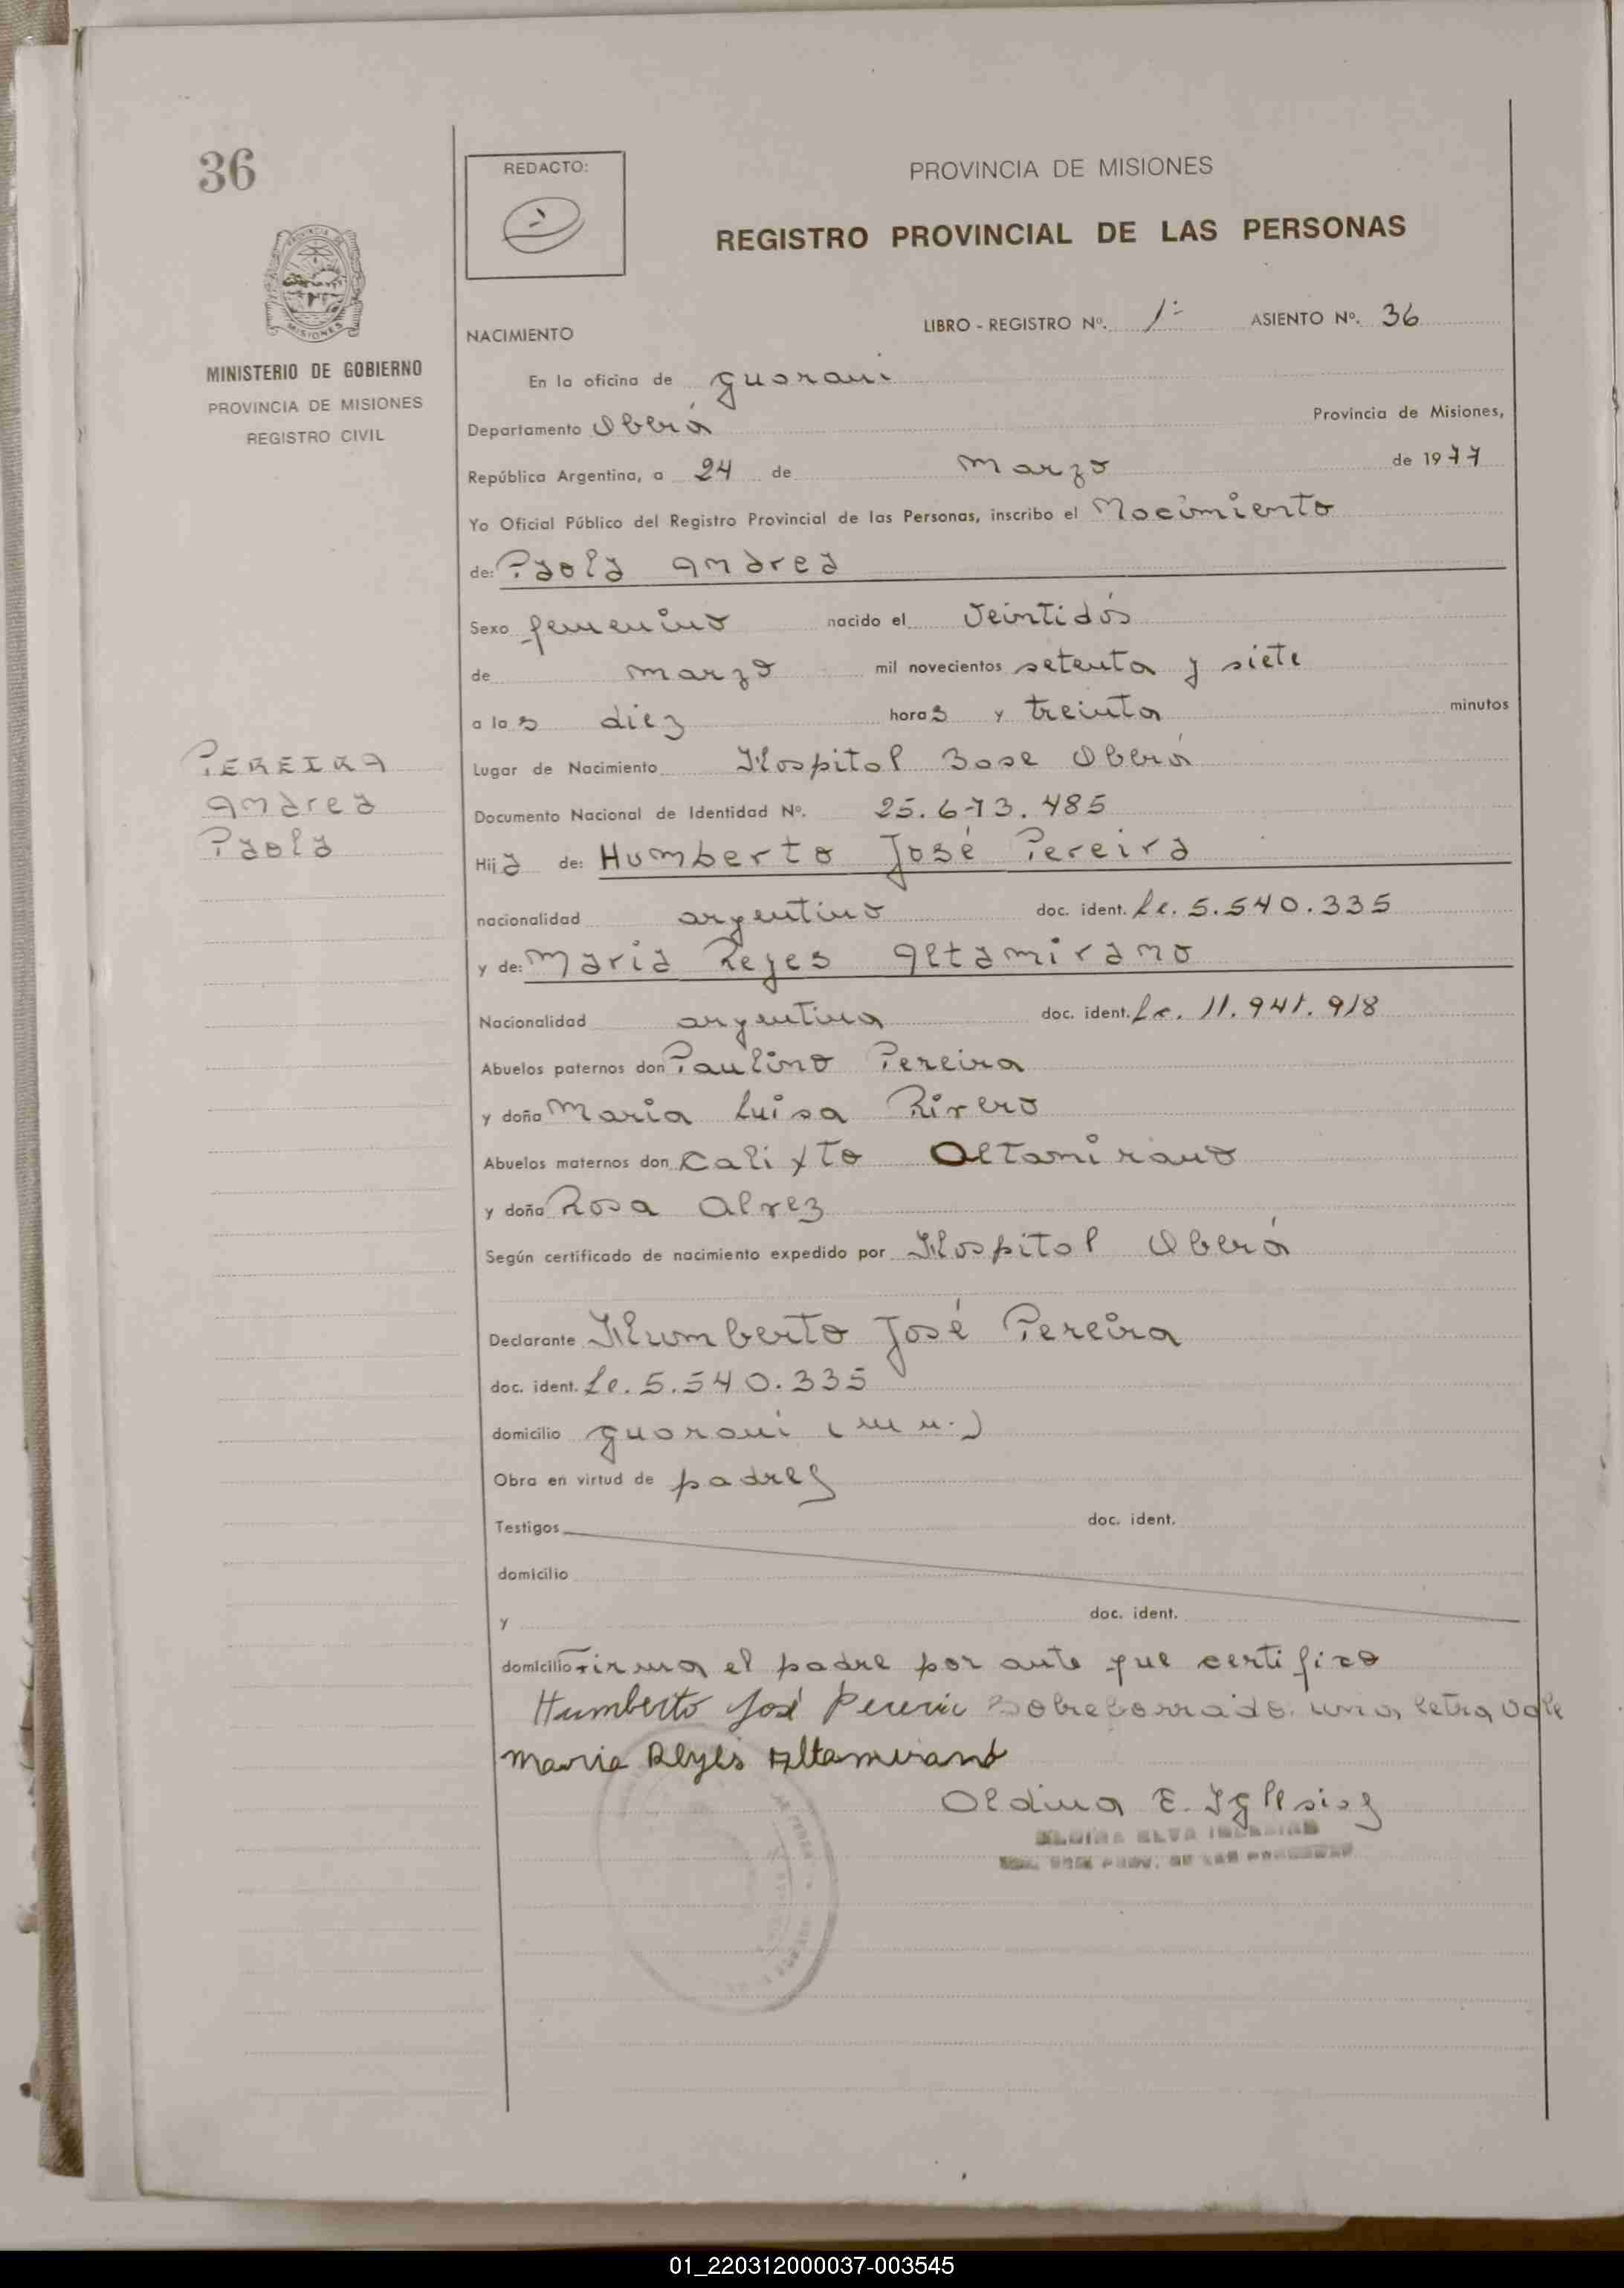 36
REDACTO:
PROVINCIA DE MISIONES
REGISTRO PROVINCIAL DE LAS PERSONAS
MISIONES
MINISTERIO DE GOBIERNO
PROVINCIA DE MISIONES
REGISTRO CIVIL
NACIMIENTO
LIBRO - REGISTRO Nº. 1º ASIENTO Nº. 36
En la oficina de Guarani
Departamento Oberá Provincia de Misiones,
República Argentina, a 24 de marzo de 1977
Yo Oficial Público del Registro Provincial de las Personas, inscribo el Nacimiento
de: Paola Andrea
Sexo femenino nacido el veintidós
de marzo mil novecientos setenta y siete
a las diez horas y treinta minutos
PEREIRA
Andrea
Paola
Lugar de Nacimiento Hospital Base Oberá
Documento Nacional de Identidad Nº. 25.673.485
Hija de: Humberto José Pereira
nacionalidad argentino doc. ident. Le. 5.540.335
y de: Maria Reyes Altamirano
Nacionalidad argentina doc. ident. Lc. 11.941.918
Abuelos paternos don Paulino Pereira
y doña Maria Luisa Rivero
Abuelos maternos don Calixto Altamirano
y doña Rosa Alvez
Según certificado de nacimiento expedido por Hospital Oberá
Declarante Humberto José Pereira
doc. ident. Le. 5.540.335
domicilio Guarani (mn.)
Obra en virtud de padres
Testigos doc. ident.
domicilio
y doc. ident.
domicilio Firma el padre por ante que certifico
Humberto José Pereira Sobreborrado una letra vale
Maria Reyes Altamirano
Aldina E. Iglesias
01_220312000037-003545